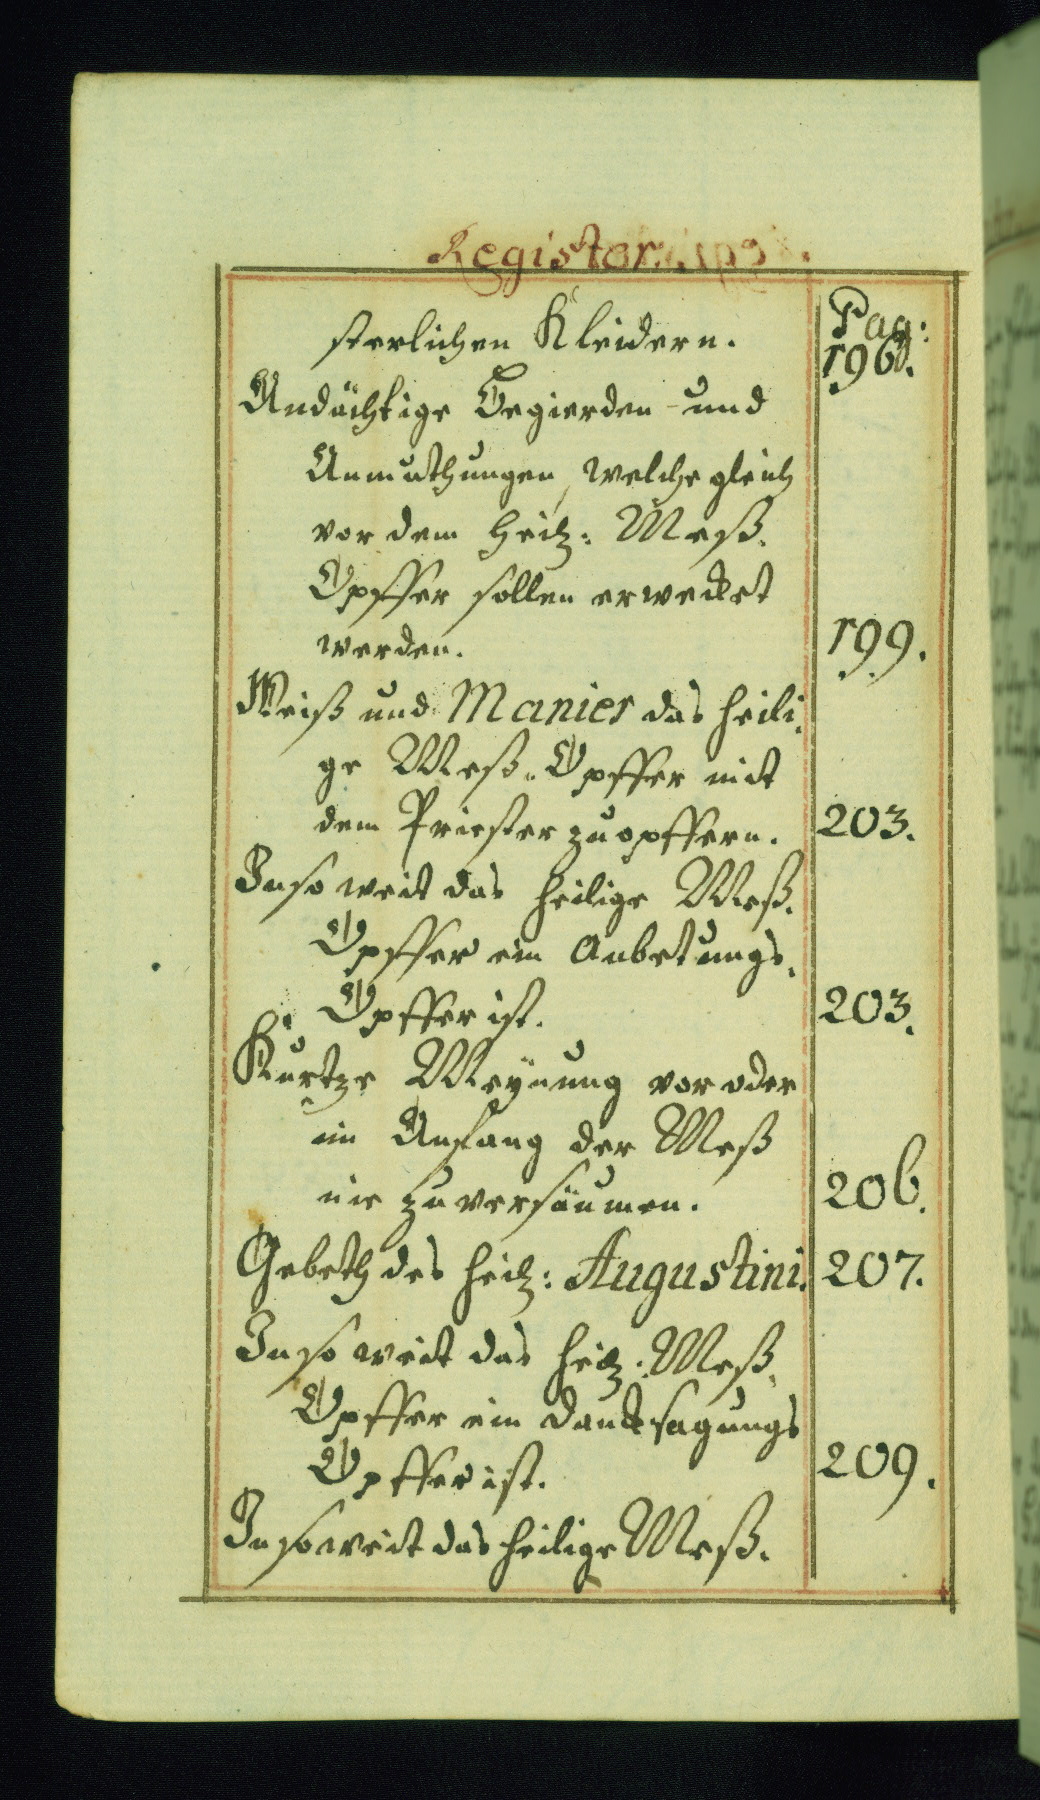 Register.
Pag:
sterlichen Kleidern. 196.
Andächtige Begierden und
Anmuthungen, welche gleich
vor dem heil: Meß-
Opffer sollen erwecket
werden. 199.
Weiß und Manier das heili-
ge Meß-Opffer mit
dem Priester zu opffern. 203.
In so weit das heilige Meß-
Opffer ein Anbetungs-
Opffer ist. 203.
Kurtze Meÿnung vor oder
im Anfang der Meß
nie zu versäumen. 206.
Gebeth des heil: Augustini. 207.
In so weit das heil: Meß-
Opffer ein Dancksagungs
Opffer ist. 209.
In so weit das heilige Meß-